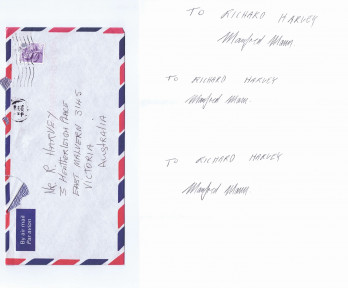 TO RICHARD HARVEY
Manfred Mann
TO RICHARD HARVEY
Manfred Mann
TO RICHARD HARVEY
Manfred Mann
Mr R. HARVEY
EAST MALVERN 3145
VICTORIA
Australia
By air mail
Par avion